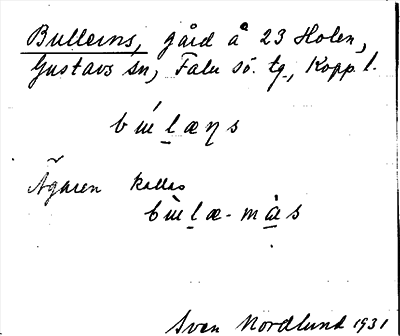 Bullerns, gård å 23 Holen,
Gustavs sn, Falu sö. tg., Kopp. l.
bɯ́l̠æŋs
Ägaren kallas
bɯ̀l̠æ-mȧ̀s
Sven Nordlund 1931